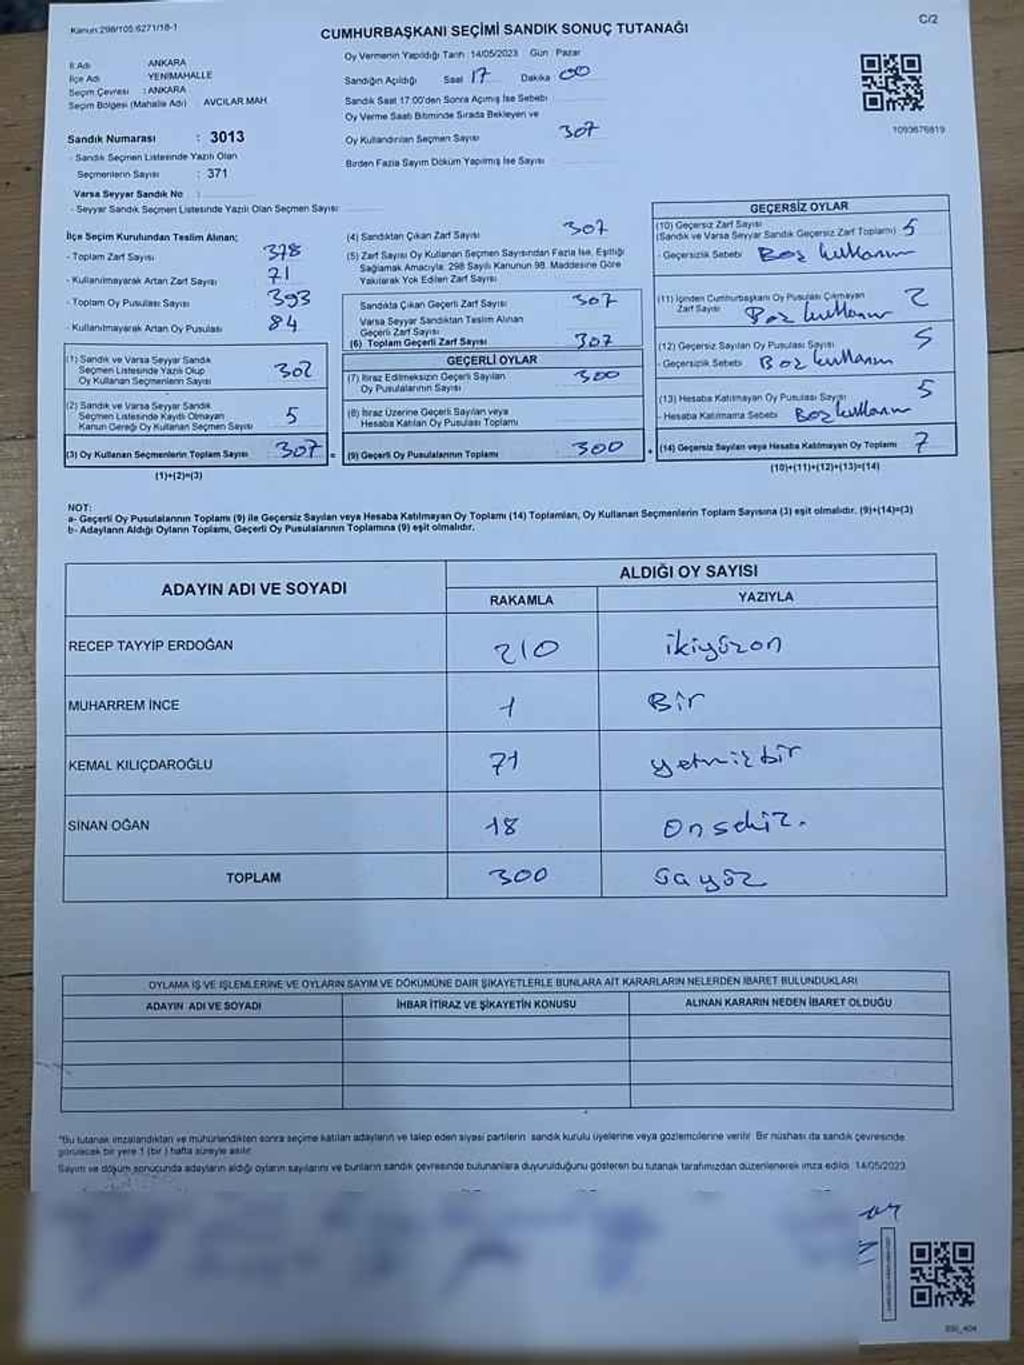 Kanun:298/105.6271/18-1
C/2
CUMHURBAŞKANI SEÇİMİ SANDIK SONUÇ TUTANAĞI
İl Adı ANKARA
İlçe Adı YENİMAHALLE
Seçim Çevresi : ANKARA
Seçim Bölgesi (Mahalle Adı) AVCILAR MAH
Sandık Numarası : 3013
- Sandık Seçmen Listesinde Yazılı Olan
Seçmenlerin Sayısı : 371
Varsa Seyyar Sandık No :
- Seyyar Sandık Seçmen Listesinde Yazılı Olan Seçmen Sayısı
Oy Vermenin Yapıldığı Tarih : 14/05/2023 Gün : Pazar
Sandığın Açıldığı Saat 17 Dakika 00
Sandık Saat 17:00'den Sonra Açımış İse Sebebi
Oy Verme Saati Bitiminde Sırada Bekleyen ve
Oy Kullandırılan Seçmen Sayısı 307
Birden Fazla Sayım Döküm Yapılmış İse Sayısı
1093676819
İlçe Seçim Kurulundan Teslim Alınan;
- Toplam Zarf Sayısı 378
- Kullanılmayarak Artan Zarf Sayısı 71
- Toplam Oy Pusulası Sayısı 393
- Kullanılmayarak Artan Oy Pusulası 84
(1) Sandık ve Varsa Seyyar Sandık
Seçmen Listesinde Yazılı Olup
Oy Kullanan Seçmenlerin Sayısı 302
(2) Sandık ve Varsa Seyyar Sandık
Seçmen Listesinde Kayıtlı Olmayan
Kanun Gereği Oy Kullanan Seçmen Sayısı 5
(3) Oy Kullanan Seçmenlerin Toplam Sayısı 307 =
(1)+(2)=(3)
(4) Sandıktan Çıkan Zarf Sayısı 307
(5) Zarf Sayısı Oy Kullanan Seçmen Sayısından Fazla İse, Eşitliği
Sağlamak Amacıyla, 298 Sayılı Kanunun 98. Maddesine Göre
Yakılarak Yok Edilen Zarf Sayısı
Sandıkta Çıkan Geçerli Zarf Sayısı 307
Varsa Seyyar Sandıktan Teslim Alınan
Geçerli Zarf Sayısı
(6) Toplam Geçerli Zarf Sayısı 307
GEÇERLİ OYLAR
(7) İtiraz Edilmeksizin Geçerli Sayılan
Oy Pusulalarının Sayısı 300
(8) İtiraz Üzerine Geçerli Sayılan veya
Hesaba Katılan Oy Pusulası Toplamı
(9) Geçerli Oy Pusulalarının Toplamı 300 +
GEÇERSİZ OYLAR
(10) Geçersiz Zarf Sayısı
(Sandık ve Varsa Seyyar Sandık Geçersiz Zarf Toplamı) 5
- Geçersizlik Sebebi Boş kullanım
(11) İçinden Cumhurbaşkanı Oy Pusulası Çıkmayan
Zarf Sayısı 2
Boş kullanım
(12) Geçersiz Sayılan Oy Pusulası Sayısı 5
- Geçersizlik Sebebi Boş kullanım
(13) Hesaba Katılmayan Oy Pusulası Sayısı 5
- Hesaba Katılmama Sebebi Boş kullanım
(14) Geçersiz Sayılan veya Hesaba Katılmayan Oy Toplamı 7
(10)+(11)+(12)+(13)=(14)
NOT:
a- Geçerli Oy Pusulalarının Toplamı (9) ile Geçersiz Sayılan veya Hesaba Katılmayan Oy Toplamı (14) Toplamları, Oy Kullanan Seçmenlerin Toplam Sayısına (3) eşit olmalıdır. (9)+(14)=(3)
b- Adayların Aldığı Oyların Toplamı, Geçerli Oy Pusulalarının Toplamına (9) eşit olmalıdır.
ADAYIN ADI VE SOYADI
ALDIĞI OY SAYISI
RAKAMLA YAZIYLA
RECEP TAYYİP ERDOĞAN 210 ikiyüzon
MUHARREM İNCE 1 Bir
KEMAL KILIÇDAROĞLU 71 yetmişbir
SİNAN OĞAN 18 Onsekiz.
TOPLAM 300
OYLAMA İŞ VE İŞLEMLERİNE VE OYLARIN SAYIM VE DÖKÜMÜNE DAİR ŞİKAYETLERLE BUNLARA AİT KARARLARIN NELERDEN İBARET BULUNDUKLARI
ADAYIN ADI VE SOYADI İHBAR İTİRAZ VE ŞİKAYETİN KONUSU ALINAN KARARIN NEDEN İBARET OLDUĞU
*Bu tutanak imzalandıktan ve mühürlendikten sonra seçime katılan adayların ve talep eden siyasi partilerin sandık kurulu üyelerine veya gözlemcilerine verilir. Bir nüshası da sandık çevresinde
görülecek bir yere 1 (bir) hafta süreyle asılır.
Sayım ve döküm sonucunda adayların aldığı oyların sayılarını ve bunların sandık çevresinde bulunanlara duyurulduğunu gösteren bu tutanak tarafımızdan düzenlenerek imza edildi. 14/05/2023